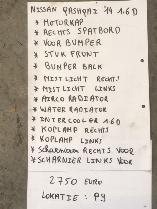 NISSAN QASHQAI J11 1.6D
* MOTORKAP
* RECHTS SPATBORD
* VOOR BUMPER
* STUK FRONT
* BUMPER BALK
* MISTLICHT RECHTS
* MISTLICHT LINKS
* AIRCO RADIATOR
* WATER RADIATOR
* INTERCOOLER 1.6D
* KOPLAMP RECHTS
* KOPLAMP LINKS
* SCHARNIER RECHTS VOOR
* SCHARNIER LINKS VOOR
2750 EURO
LOKATIE : P9